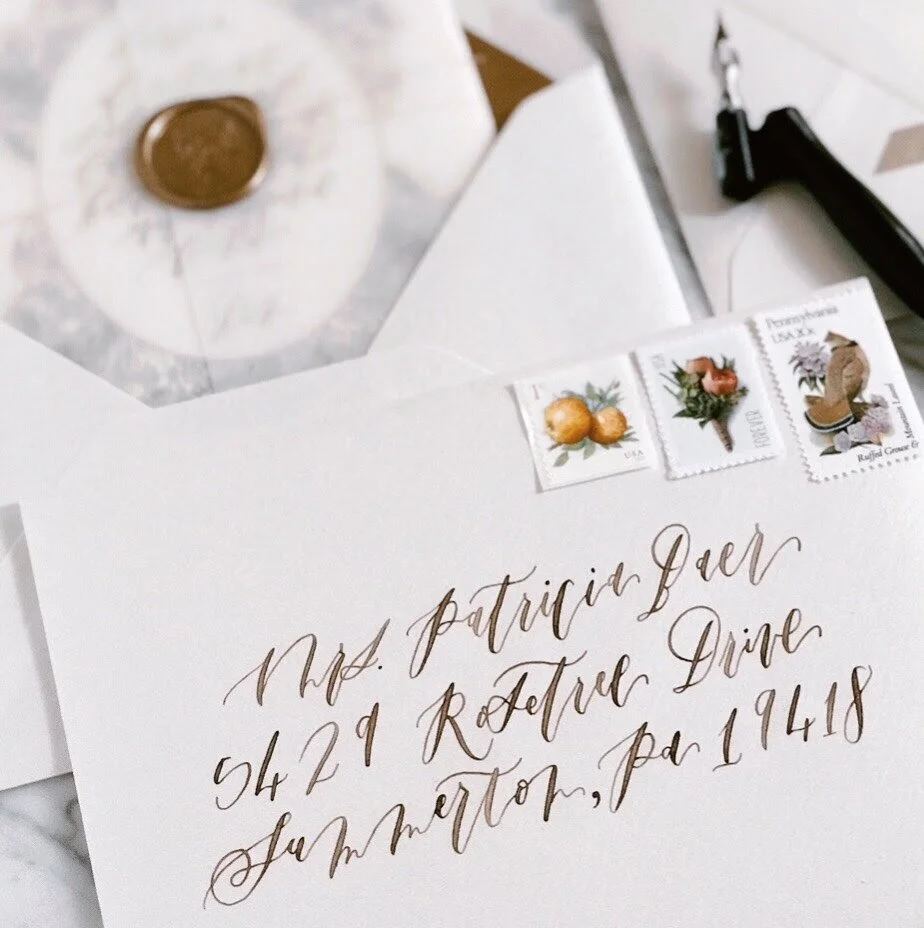 1¢
USA
USA
FOREVER
Pennsylvania
USA 20c
Ruffed Grouse &
Mountain Laurel
Mrs. Patricia Baer
5429 Rosetree Drive
Summerton, Pa 19418